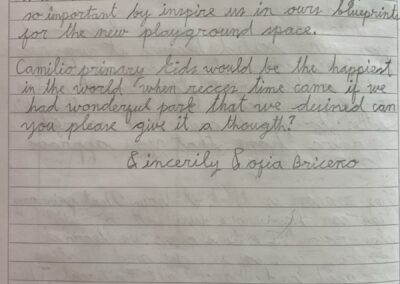 so important by inspire us in ours blueprints
for the new playground space.
Camilio primary kids would be the happiest
in the world when recces time came if we
had wonderful park that we desined can
you please give it a thougth?
Sincerily Sofia Briceno